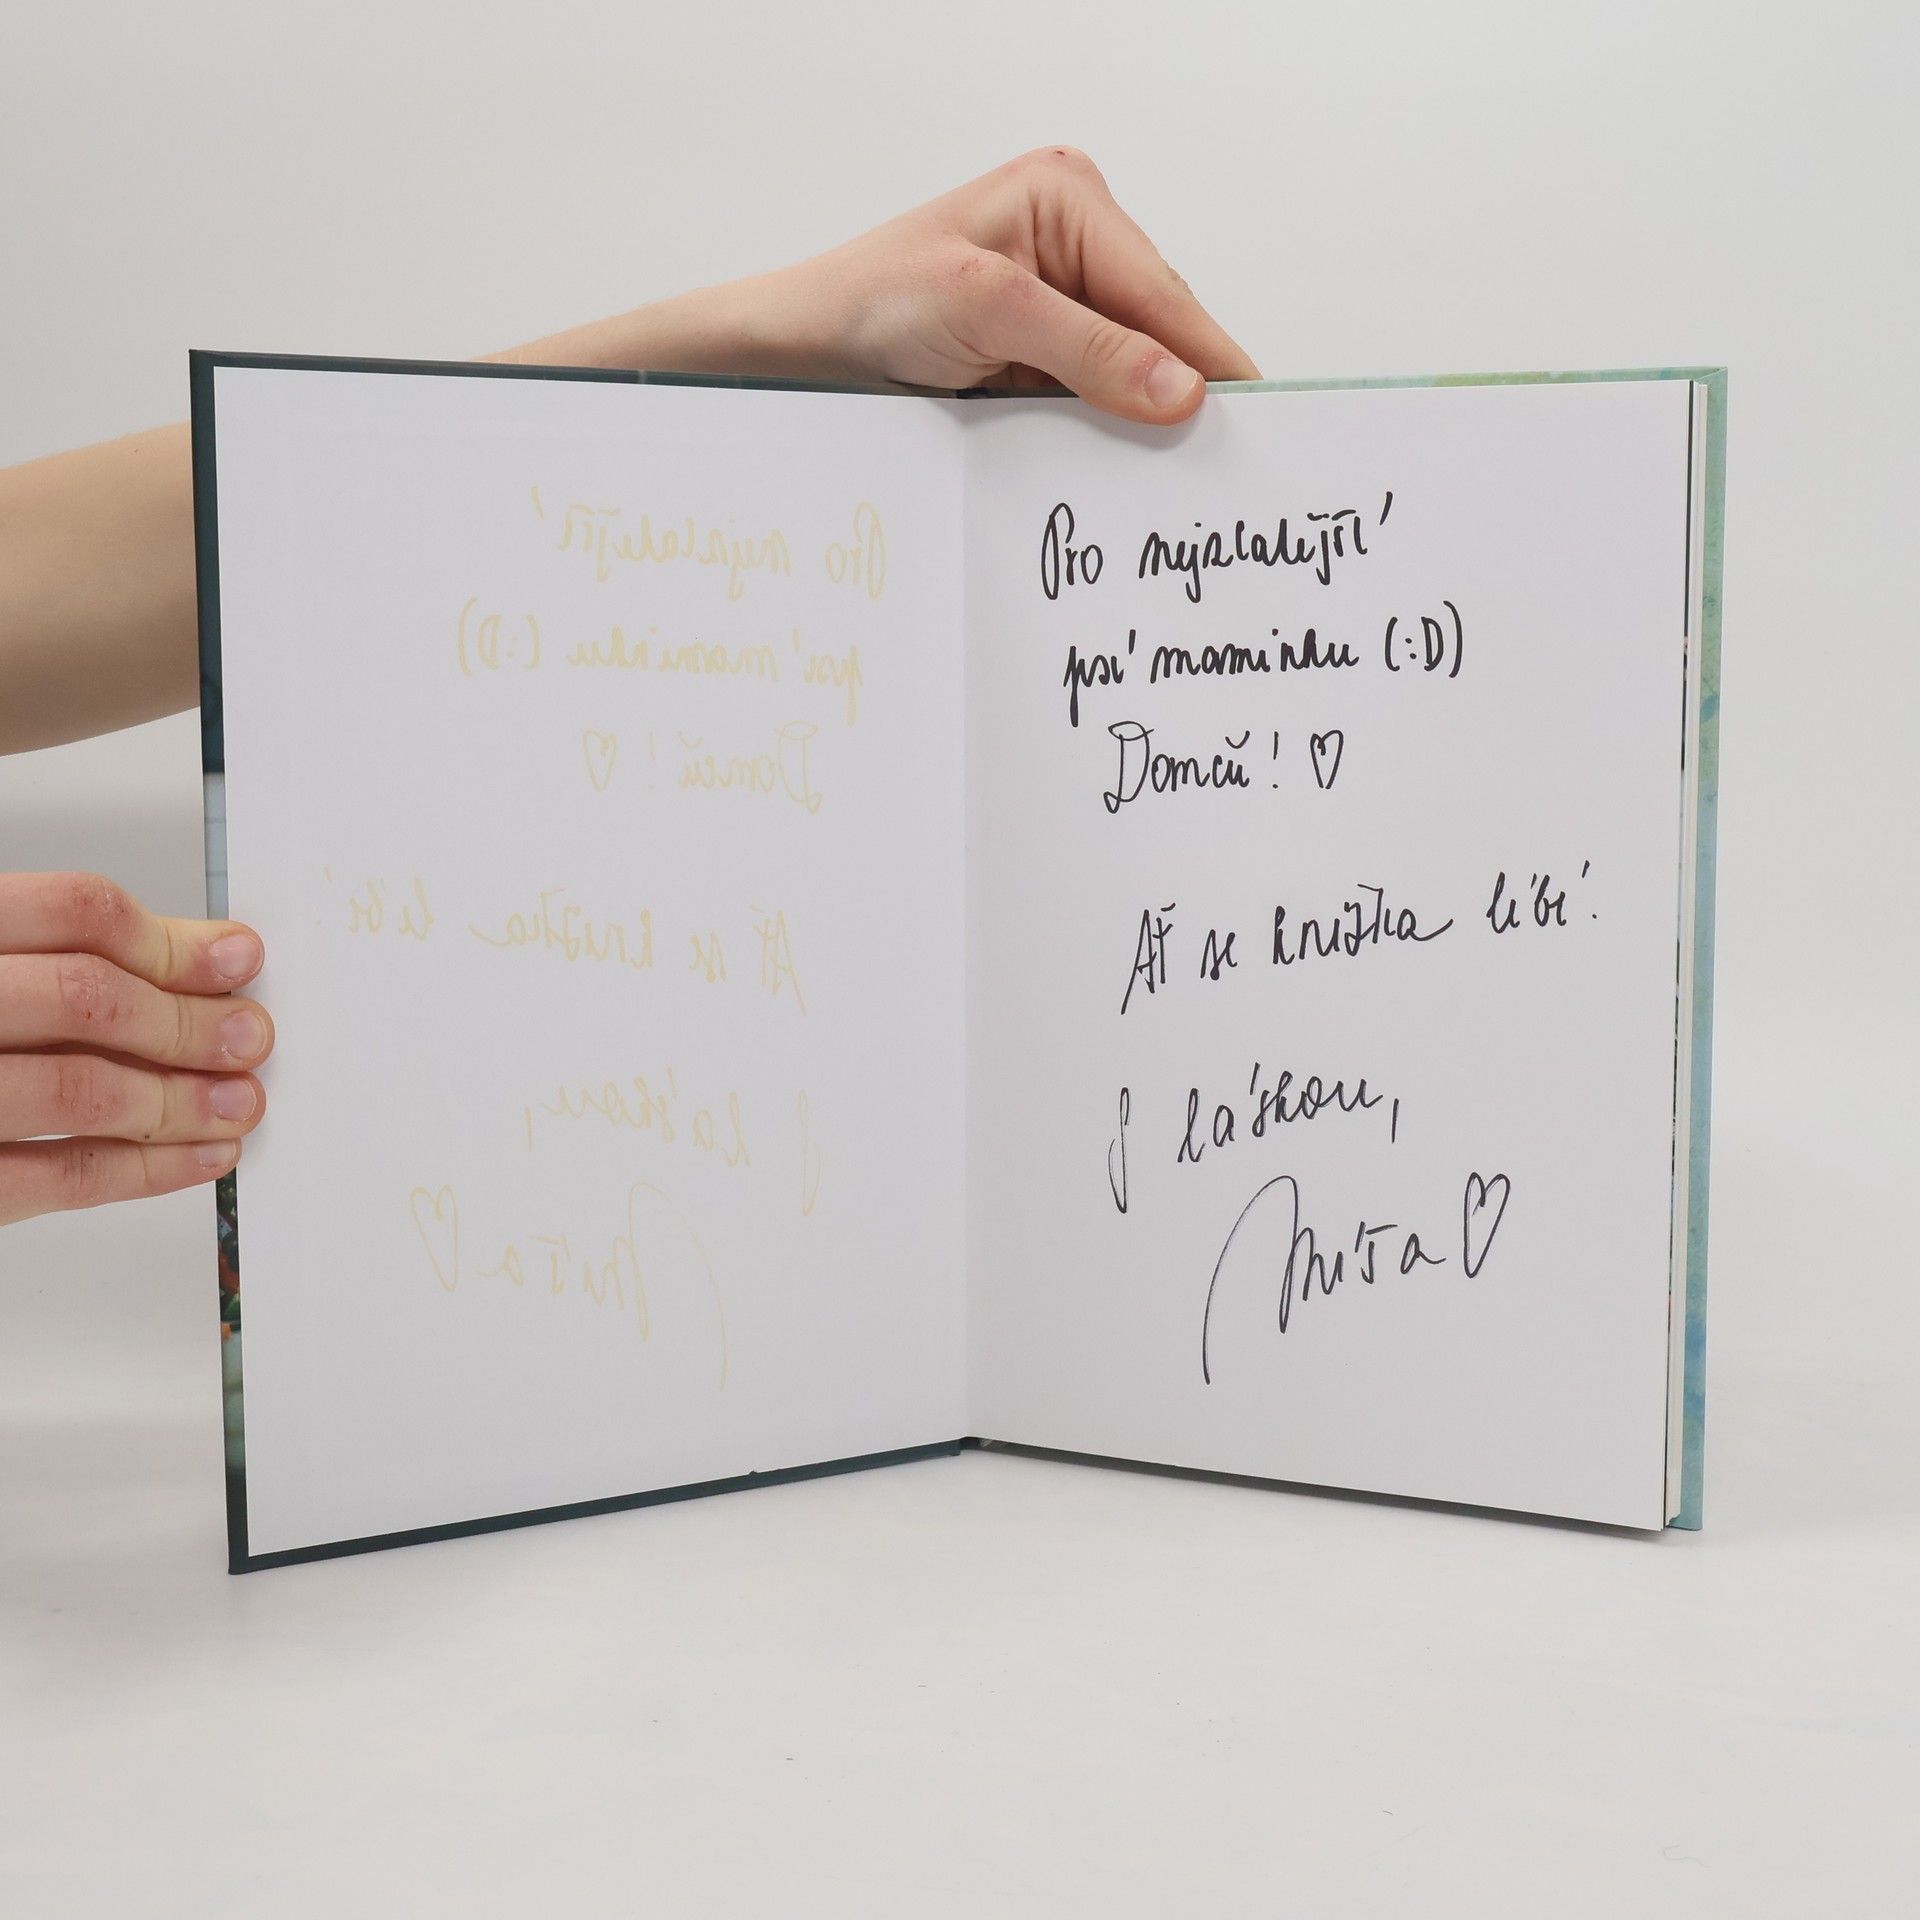 Pro nejzlatější
psí maminku (:D)
Domču! ♡
Ať se knížka líbí!
S láskou,
Míša ♡